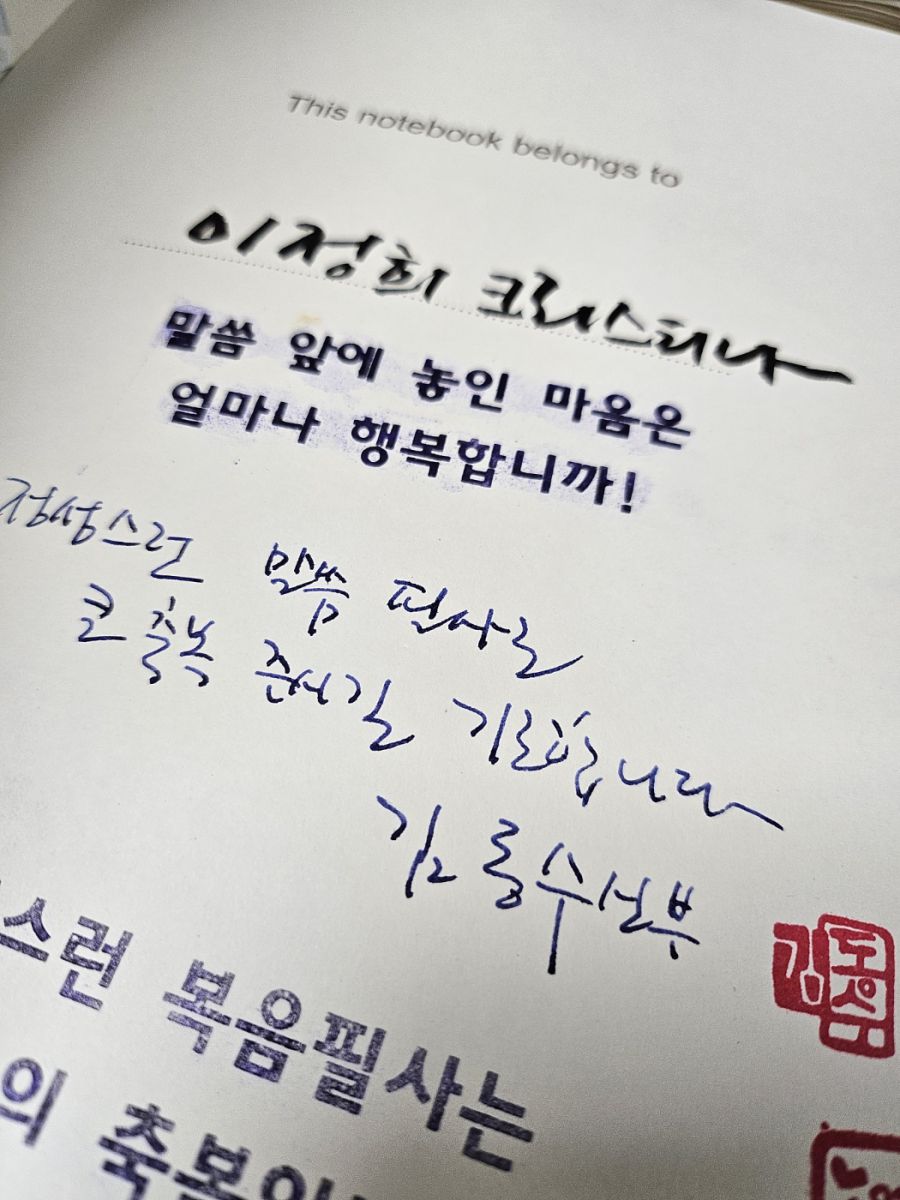 This notebook belongs to
이정희 크리스티나
말씀 앞에 놓인 마음은
얼마나 행복합니까!
정성스런 말씀 필사로
큰 축복 준비길 기도합니다
김동수 신부
김동수
스런 복음필사는
의 축복